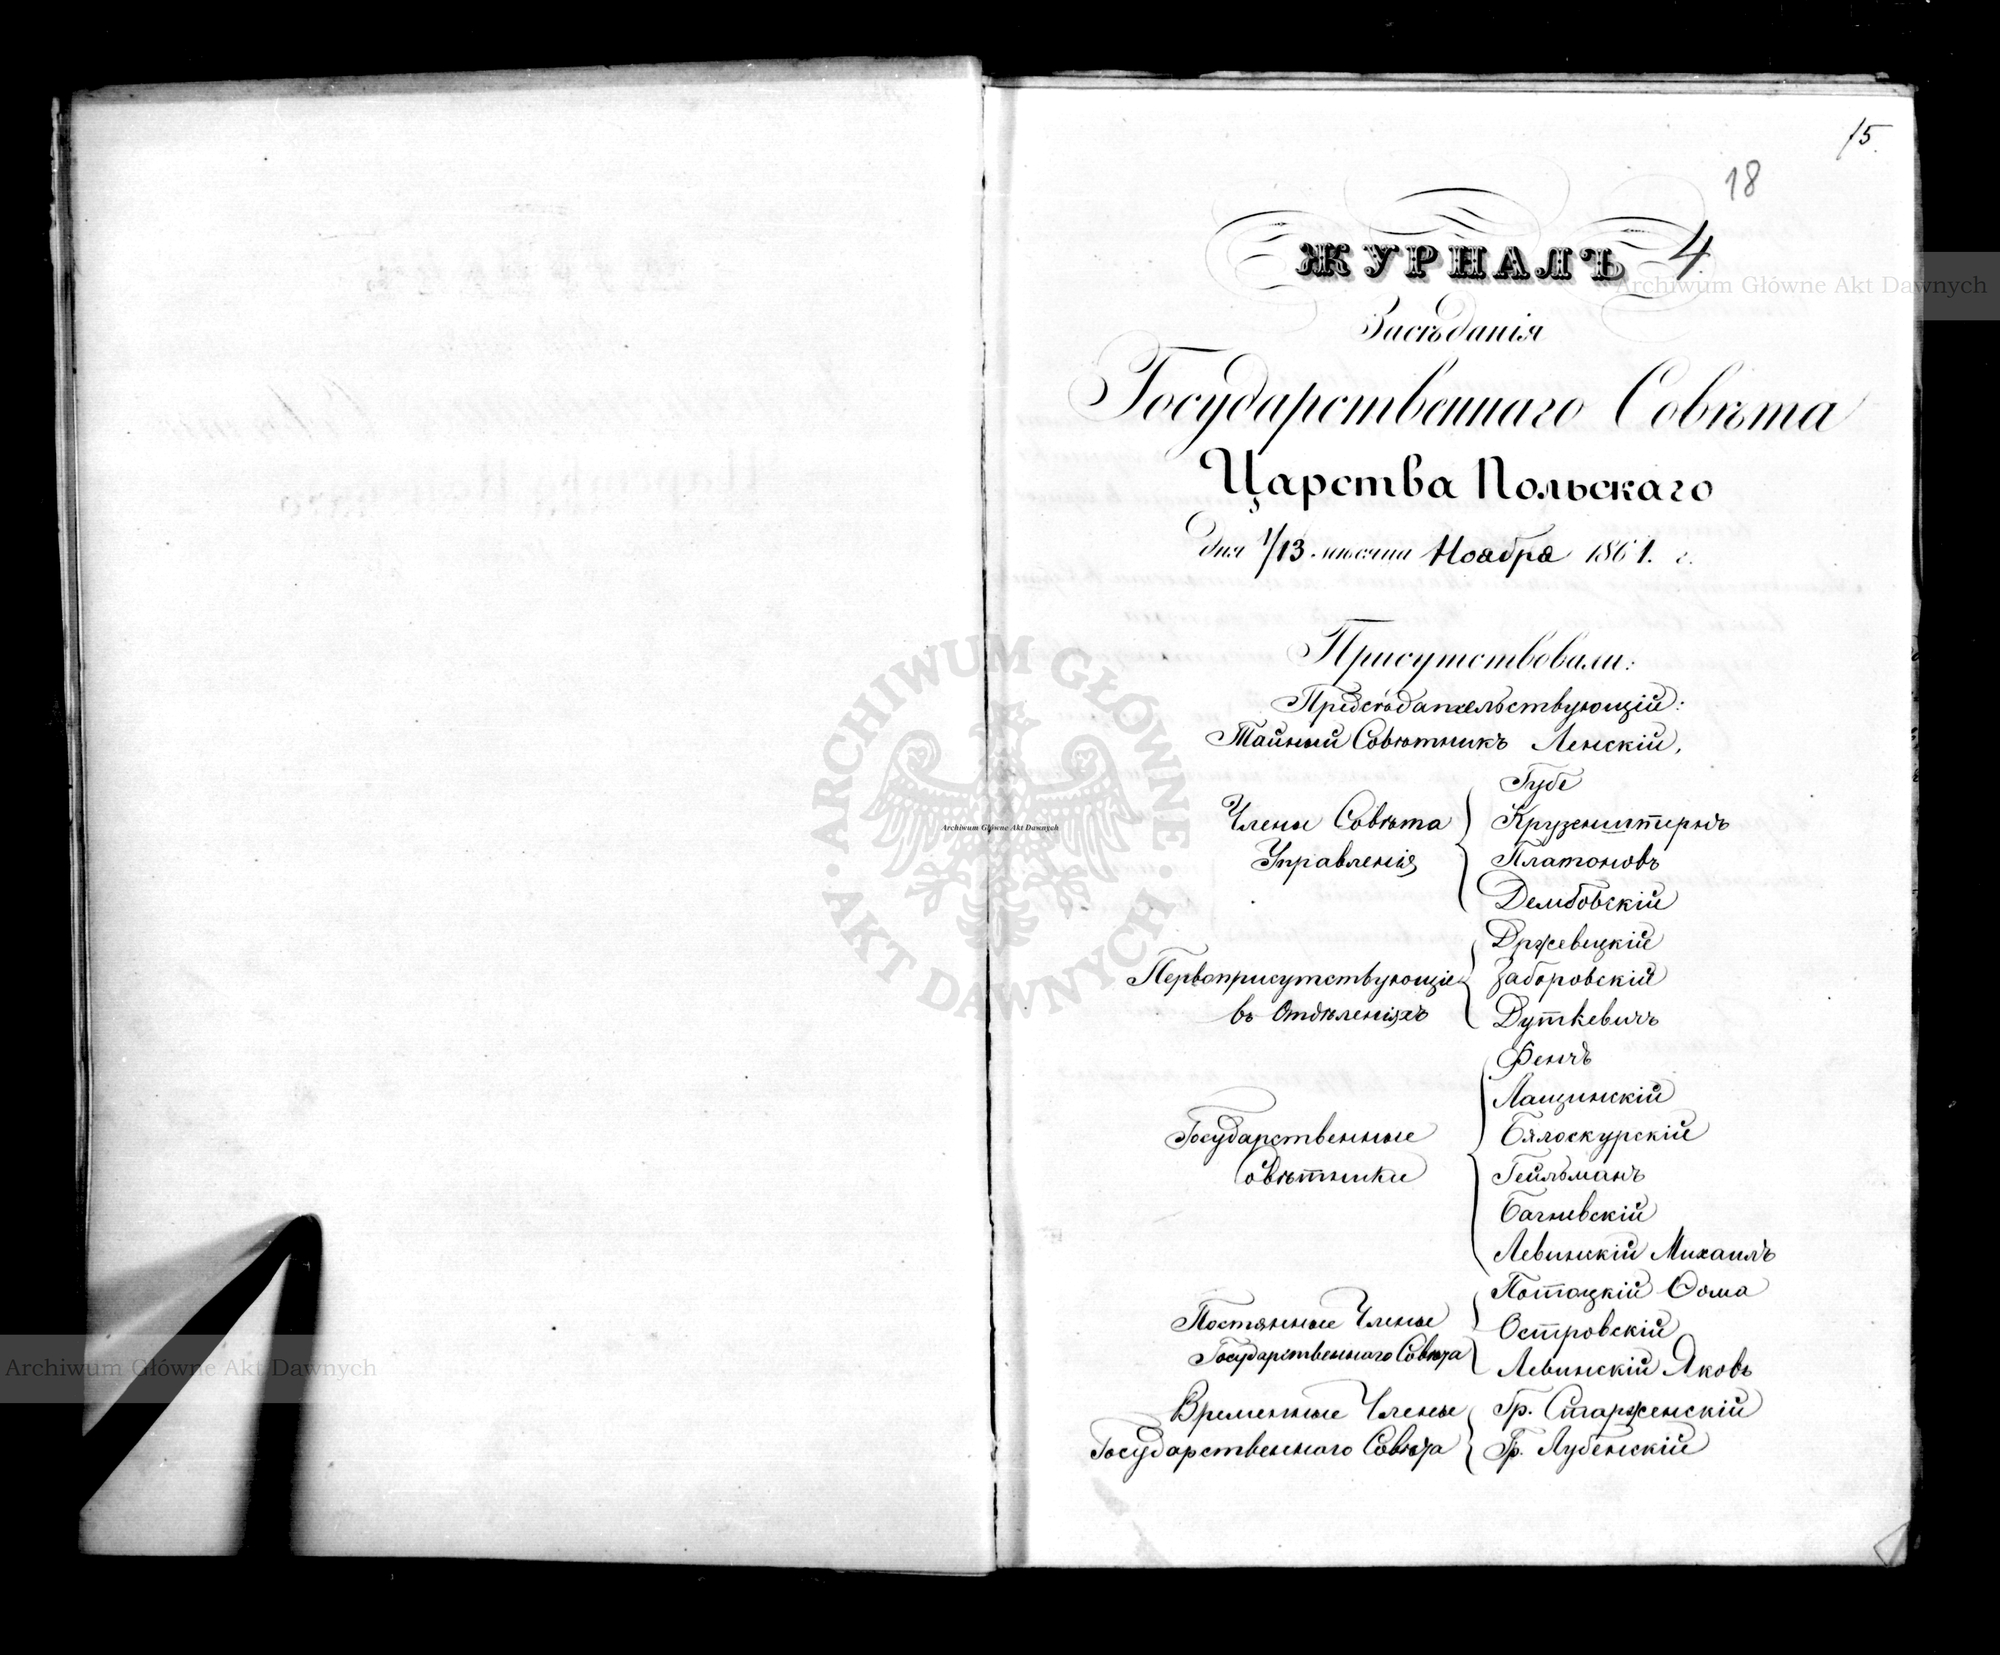 15.
18
ЖУРНАЛЪ 4.
Засѣданія
Государственнаго Совѣта
Царства Польскаго
дня 1/13 мѣсяца Ноября 1861. г.
Присутствовали:
Предсѣдательствующій:
Тайный Совѣтникъ Ленскій,
Члены Совѣта
Управленія
Губе
Крузенштернъ
Платоновъ
Дембовскій
Первоприсутствующіе
въ Отдѣленіяхъ
Држевецкій
Заборовскій
Дуткевичъ
Государственные
Совѣтники
Феншъ
Лащинскій
Бялоскурскій
Гейльманъ
Багневскій
Левинскій Михаилъ
Постянные Члены
Государственнаго Совѣта
Потоцкій Ѳома
Островскій
Левинскій Яковъ
Временные Члены
Государственнаго Совѣта
Гр. Старженскій
Гр. Лубенскій
Archiwum Główne Akt Dawnych
ARCHIWUM GŁÓWNE
AKT DAWNYCH
Archiwum Główne Akt Dawnych
Archiwum Główne Akt Dawnych